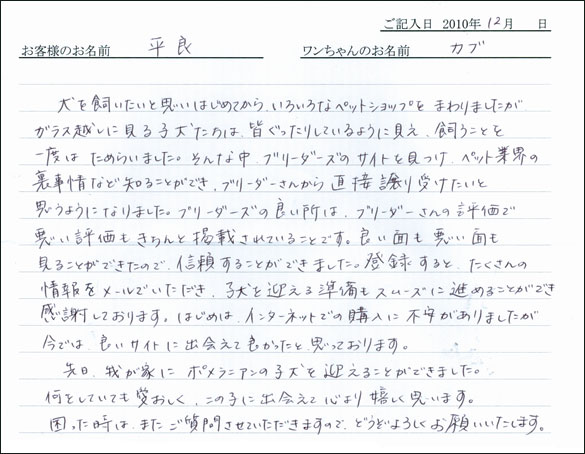 ご記入日 2010年 12月 日
お客様のお名前 平良 ワンちゃんのお名前 カブ
犬を飼いたいと思いはじめてから、いろいろなペットショップを まわりましたが
ガラス越しに見る子犬たちは、皆ぐったりしているように見え、飼うことを
一度は ためらいました。そんな中、ブリーダーズのサイトを見つけ、ペット業界の
裏事情など知ることができ、ブリーダーさんから直接譲り受けたいと
思うようになりました。ブリーダーズの良い所は、ブリーダーさんの評価で
悪い評価もきちんと掲載されていることです。良い面も悪い面も
見ることができたので、信頼することができました。登録すると、たくさんの
情報をメールでいただき、子犬を迎える準備もスムーズに進めることができ
感謝しております。はじめは、インターネットでの購入に不安がありましたが
今では、良いサイトに出会えて良かったと思っております。
先日、我が家に ポメラニアンの子犬を迎えることができました。
何をしていても愛おしく、この子に出会えて心より嬉しく思います。
困った時は、またご質問させていただきますので、どうぞよろしくお願いいたします。